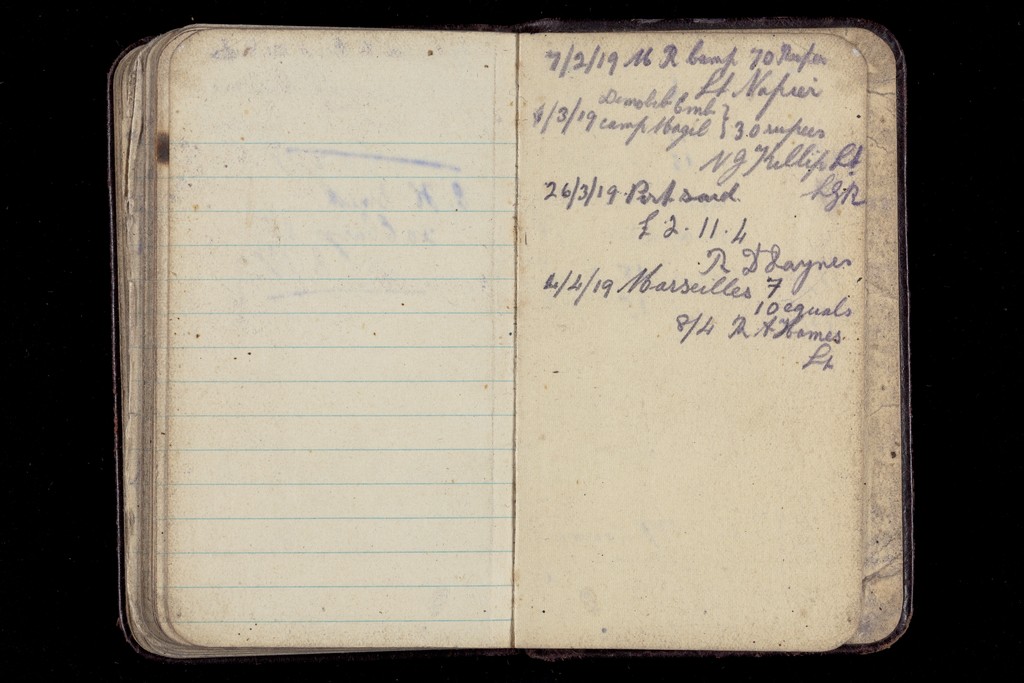 7/2/19 M R Camp 70 Rupees
Lt Napier
Demolib Emb
1/3/19 camp Magil } 30 rupees
N G Killip Lt
26/3/19 Port said LGR
£ 2. 11. 4
R D Jaynes
4/4/19 Marseilles 7
10 equals
8/4 R A Hames
Lt